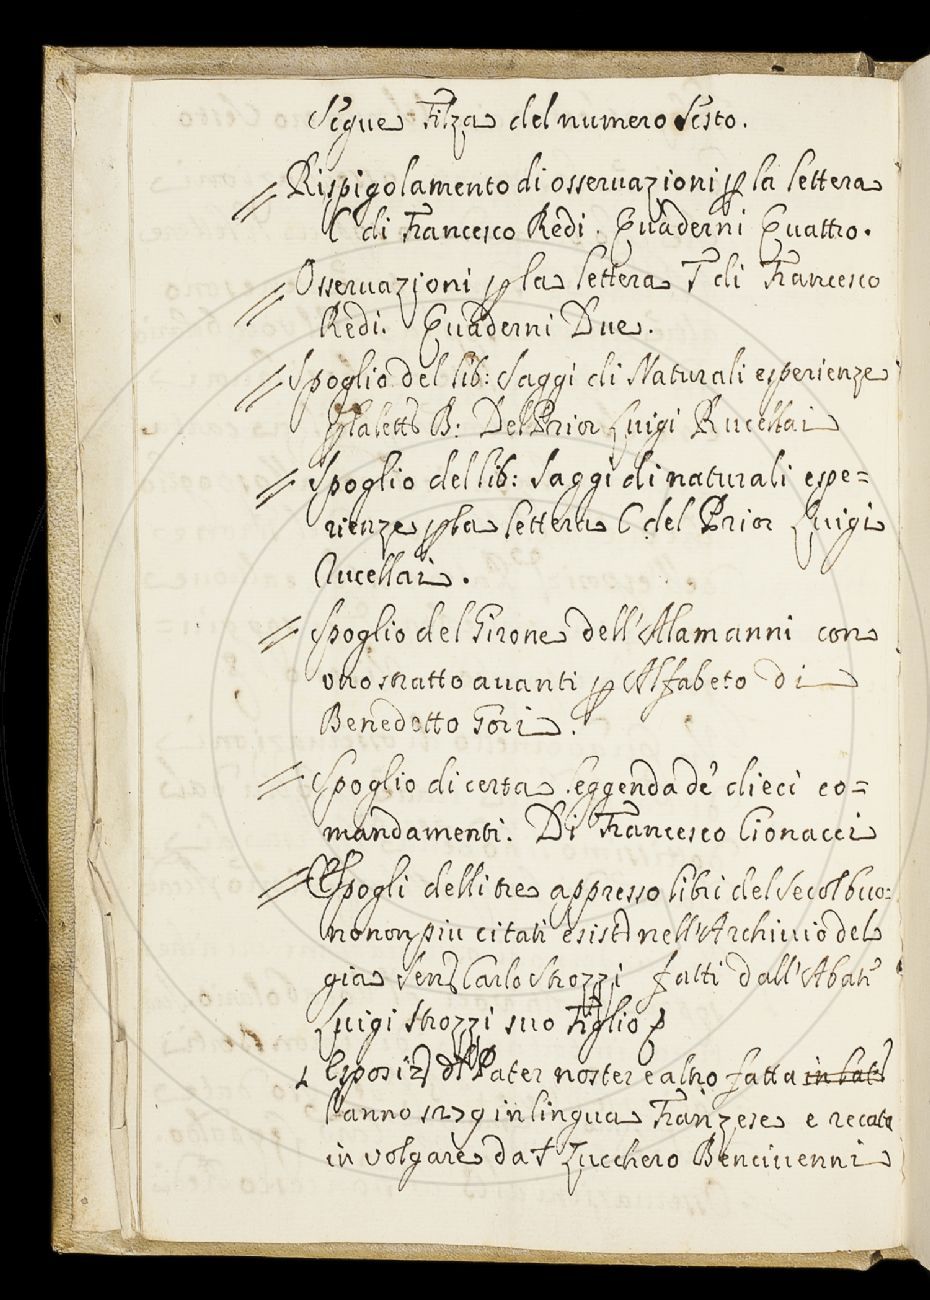 Segue Filza del numero Sesto.
Rispigolamento di osseruazioni p la lettera
C di Francesco Redi. Quaderni Quattro.
Osseruazioni p la lettera T di Francesco
Redi. Quaderni Due.
Spoglio del lib: Saggi di Naturali esperienze
p la lett.ª B: Del Prior Luigi Rucellai
Spoglio del lib: Saggi di naturali espe=
rienze p la lettera C del Prior Luigi
Rucellai.
Spoglio del Girone dell'Alamanni con
vno stratto auanti p Alfabeto di
Benedetto Gori.
Spoglio di certa leggenda de' dieci co=
mandamenti. Di Francesco Cionacci
Spogli delli tre appresso libri del Secol buo=
no non piu citati esist.ti nell'Archiuio del
gia Sen.r Carlo Strozzi fatti dall'Abate
Luigi Strozzi suo Figlio
Esposiz.e del Pater noster e altro fatta
l'anno 1279 in lingua Franzese e recata
in volgare da Zucchero Benciuenni